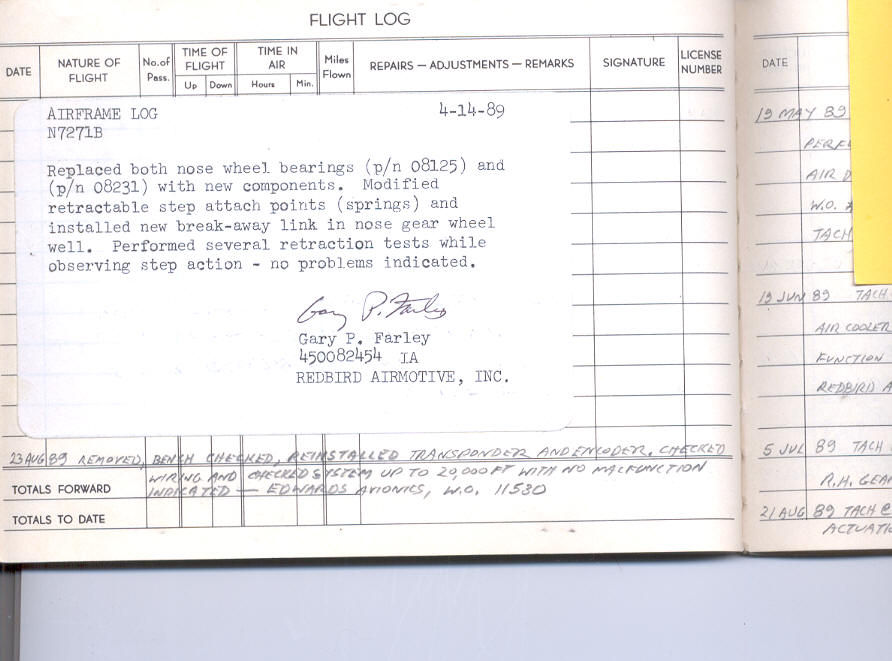 FLIGHT LOG
DATE
NATURE OF
FLIGHT
No. of
Pass.
TIME OF
FLIGHT
Up Down
TIME IN
AIR
Hours Min.
Miles
Flown
REPAIRS — ADJUSTMENTS — REMARKS
SIGNATURE
LICENSE
NUMBER
AIRFRAME LOG 4-14-89
N7271B
Replaced both nose wheel bearings (p/n 08125) and
(p/n 08231) with new components. Modified
retractable step attach points (springs) and
installed new break-away link in nose gear wheel
well. Performed several retraction tests while
observing step action - no problems indicated.
Gary P. Farley
Gary P. Farley
450082454 IA
REDBIRD AIRMOTIVE, INC.
23 AUG 89 REMOVED, BENCH CHECKED, REINSTALLED TRANSPONDER AND ENCODER. CHECKED
WIRING AND CHECKED SYSTEM UP TO 20,000 FT WITH NO MALFUNCTION
INDICATED — EDWARDS AVIONICS, W.O. 11580
TOTALS FORWARD
TOTALS TO DATE
DATE
19 MAY 89
PERF
AIR D
W.O.
TACH
19 JUN 89 TACH
AIR COOLER
FUNCTION
REDBIRD A
5 JUL 89 TACH
R.H. GEAR
21 AUG 89 TACH @
ACTUATI